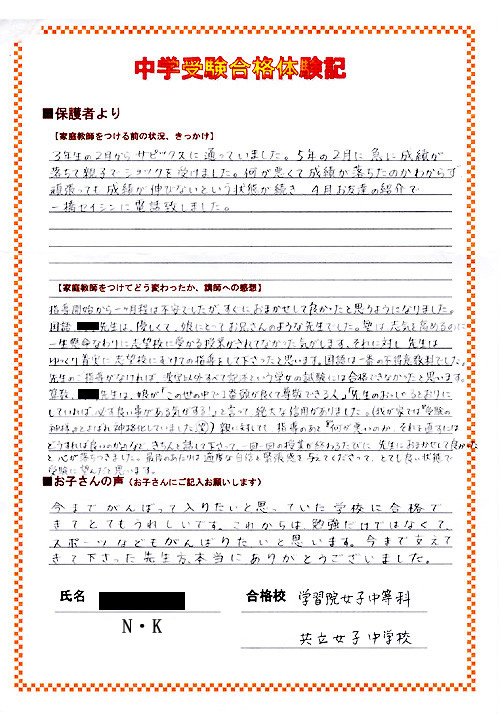 中学受験合格体験記
■保護者より
【家庭教師をつける前の状況、きっかけ】
3年生の2月からサピックスに通っていました。5年の2月に急に成績が
落ちて親子でショックを受けました。何が悪くて成績が落ちたのかわからず
頑張っても成績が伸びないという状態が続き、4月お友達の紹介で
一橋セイシンに電話致しました。
【家庭教師をつけてどう変わったか、講師への感想】
指導開始から一ヶ月程は不安でしたが、すぐにおまかせして良かったと思うようになりました。
国語 先生は、優しくて、娘にとってお兄さんのような先生でした。塾は志気を高めるのに
一生懸命なわりに志望校に受かる授業がされてなかった気がします。それに対し、先生は
ゆっくり着実に志望校にむけての指導をして下さったと思います。国語は一番の不得意教科でした。
先生のご指導がなければ、漢字以外すべて記述という学女の試験には合格できなかったと思います。
算数、 先生は、娘が「この世の中で1番頭が良くて尊敬できる人」「先生のおっしゃるとおりに
していれば必ず良い事がある気がする!」と言って絶大な信用がありました。(我が家では"受験の
神様"とよばれ神格化していました(笑)) 親に対して、指導のあと、何が悪いのか、それを直すには
どうすれば良いのかなど、きちんと話して下さって、一回一回の授業が終わるたびに、先生におまかせして良かった
と心が落ちつきました。最後のあたりは適度な自信と緊張感を与えてくださって、とても良い状態で
受験に望んだと思います。
■お子さんの声（お子さんにご記入お願いします）
今までがんばって入りたいと思っていた学校に合格で
きてとてもうれしいです。これからは、勉強だけではなくて、
スポーツなどもがんばりたいと思います。今まで支えて
きて下さった先生方、本当にありがとうございました。
氏名
N・K
合格校 学習院女子中等科
共立女子中学校